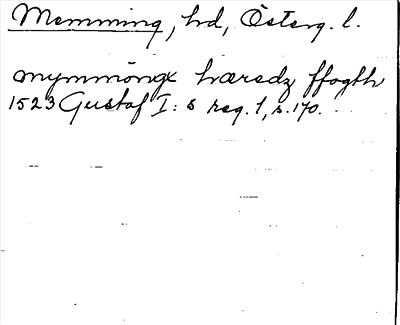 Memming, hd, Österg. l.
mymmöngx hæredz ffogth
1523 Gustaf I: s reg. 1, s. 170.